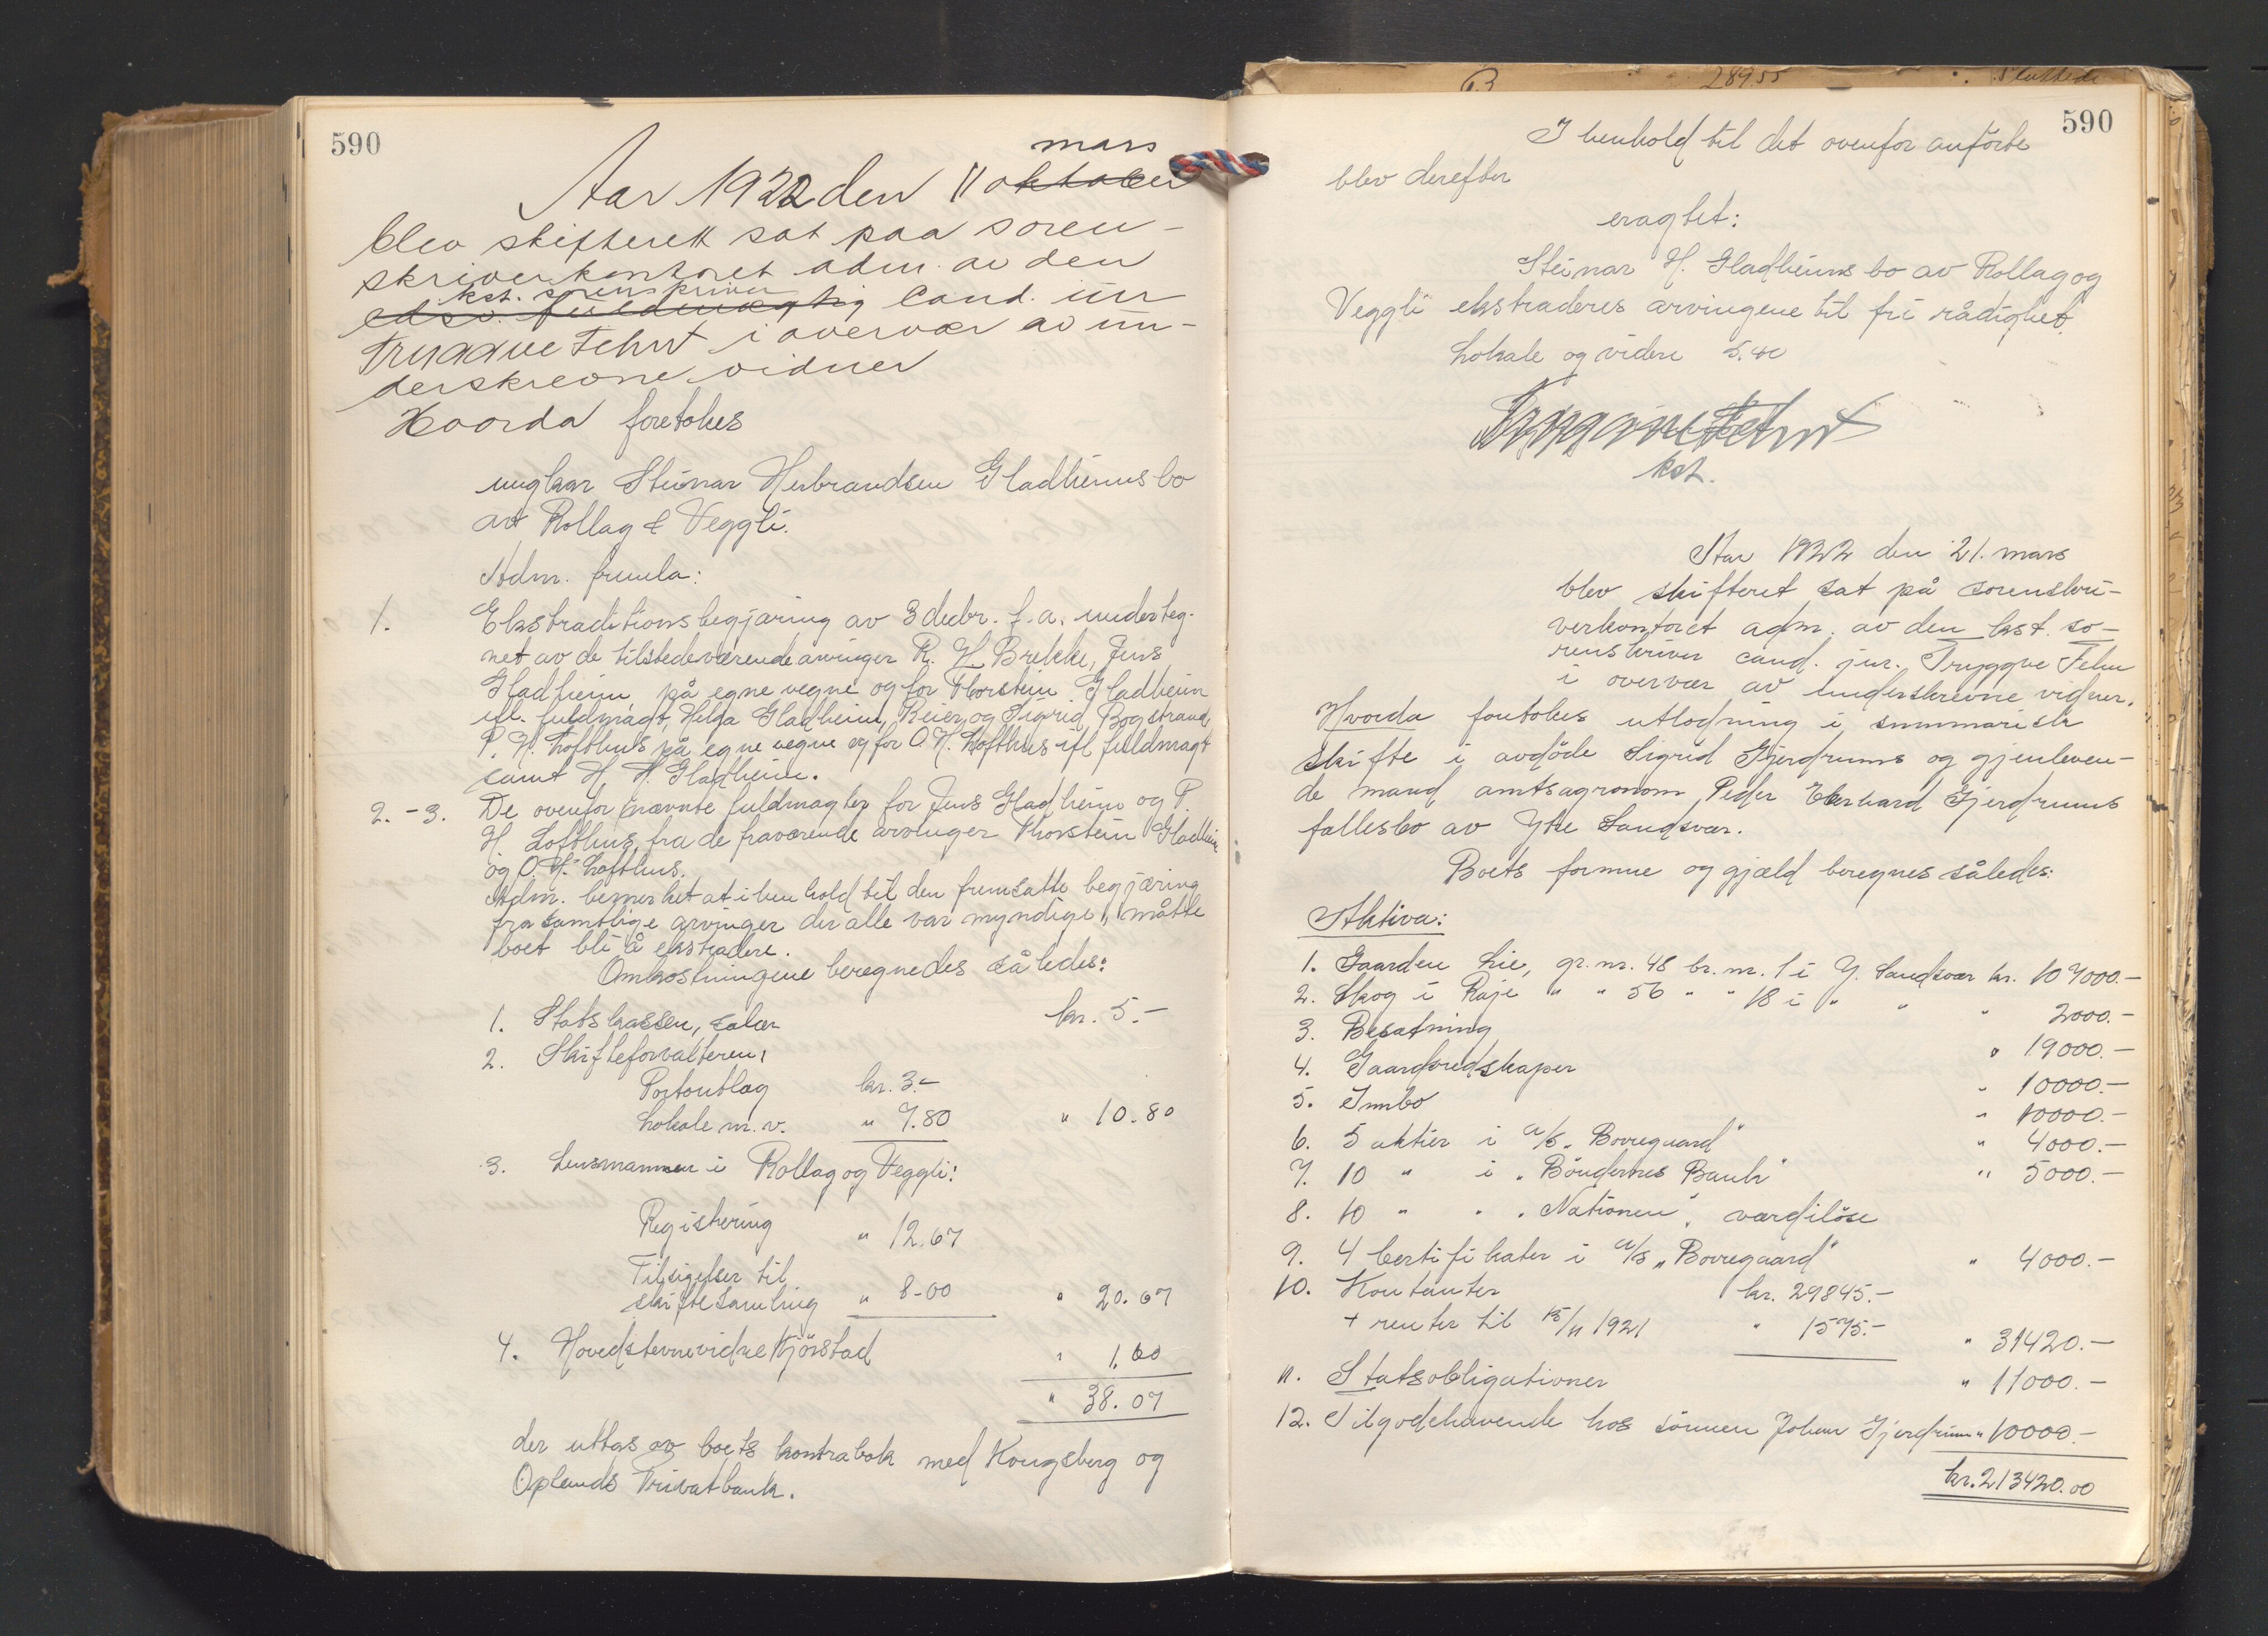 590
mars
Aar 1922 den 11 oktober
blev skifterett sat paa soren-
skriverkontoret adm. av den
kst. sorenskriver
edsv. fuldmægtig cand. jur
Tryggve Fehn i overvær av un-
derskrevne vidner
Hvorda foretokes
ungkar Steinar Herbrandsen Gladheims bo
av Rollag & Veggli.
Adm. fremla:
1. Ekstraditionsbegjæring av 3 decbr. f.a. underteg-
net av de tilstedeværende arvinger R. H. Brekke, Jens
Gladheim på egne vegne og for Thorstein Gladheim
ifl. fuldmagt, Helga Gladheim, Reier og Sigrid Bogstrand
P. H. Lofthus på egne vegne og for O. H. Lofthus ifl. fuldmagt
samt H. H. Gladheim.
2.-3. De ovenfor nævnte fuldmagter for Jens Gladheim og P.
H. Lofthus, fra de fraværende arvinger Thorstein Gladheim
og O. H. Lofthus.
Adm. bemerket at i henhold til den fremsatte begjæring
fra samtlige arvinger der alle var myndige, måtte
boet bli å ekstradere.
Omkostningene beregnedes således:
1. Statskassen, salær kr. 5.-
2. Skifteforvalteren,
Portoutlæg kr. 3.-
Lokale m.v. " 7.80 " 10.80
3. Lensmannen i Rollag og Veggli:
Registrering " 12.67
Tilsigelser til
skiftesamling " 8-00 " 20.67
4. Hovedstevnevidne Kjörstad " 1.60
" 38.07
der uttas av boets kontrabok med Kongsberg og
Oplands Privatbank.
28955
590
I henhold til det ovenfor anførte
blev derefter
eragtet:
Steinar H. Gladheims bo av Rollag og
Veggli ekstraderes arvingene til fri rådighet.
Lokale og videre 5.40
Tryggve Fehn
kst.
Aar 1922 den 21. mars
blev skifteret sat på sorenskri-
verkontoret adm. av den kst. so-
renskriver cand. jur. Tryggve Fehn
i overvær av underskrevne vidner.
Hvorda foretokes utlodning i summarisk
skifte i avdöde Sigrid Gjerdrums og gjenleven-
de mand amtsagronom Peder Eberhard Gjerdrums
fællesbo av Ytre Sandsvær.
Boets formue og gjæld beregnes således:
Aktiva:
1. Gaarden Lie, gr.nr. 48 br.nr. 1 i Y. Sandsvær kr. 107000.-
2. Skog i Raje " " 56 " " 18 i " " " 2000.-
3. Besætning " 19000.-
4. Gaardsredskaper " 10000.-
5. Innbo " 10000.-
6. 5 aktier i a/s "Borregaard" " 4000.-
7. 10 " i "Böndernes Bank" " 5000.-
8. 10 " " "Nationen", værdilöse
9. 4 certifikater i a/s "Borregaard" " 4000.-
10. Kontanter kr. 29845.-
+ renter til 15/11 1921 " 1575.- " 31420.-
11. Statsobligationer " 11000.-
12. Tilgodehavende hos sönnen Johan Gjerdrum " 10000.-
kr. 213420.00